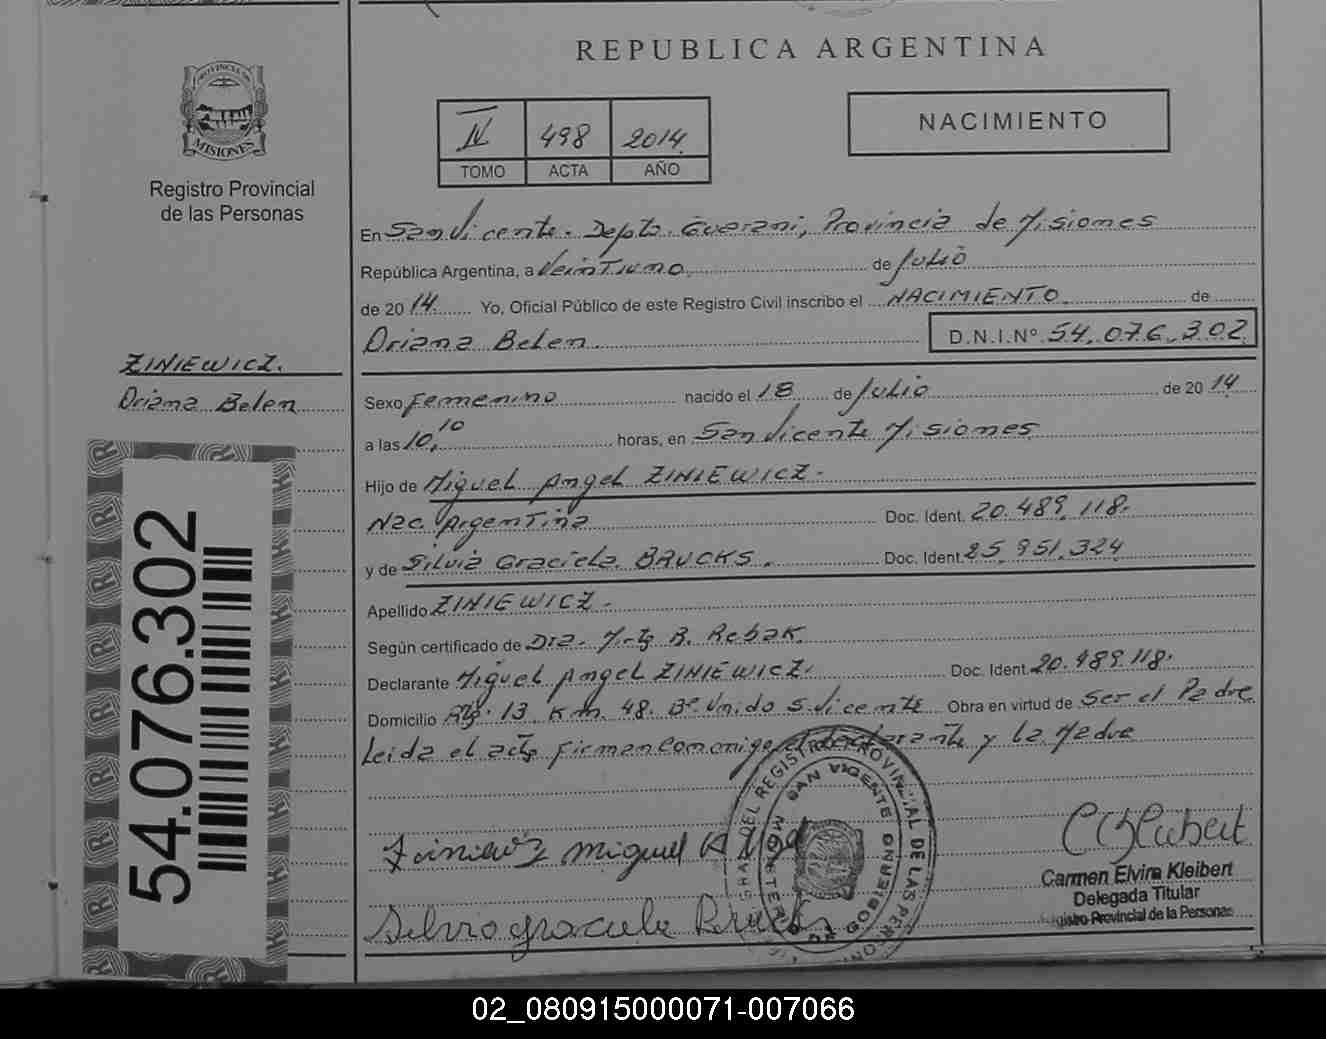 REPUBLICA ARGENTINA
PROVINCIA DE
MISIONES
Registro Provincial
de las Personas
IV 498 2014
TOMO ACTA AÑO
NACIMIENTO
En San Vicente. Depto. Guarani, Provincia de Misiones
República Argentina, a VeinTiuno de Julio
de 2014 Yo, Oficial Público de este Registro Civil inscribo el NACIMIENTO de
Oriana Belen D.N.I.Nº 54.076.302
ZINIEWICZ.
Oriana Belen
Sexo Femenino nacido el 18 de Julio de 2014
a las 10,10 horas, en San Vicente Misiones
Hijo de Miguel Angel ZINIEWICZ.
Nac. Argentina Doc. Ident. 20.489.118.
y de Silvia Graciela BRUCKS. Doc. Ident. 25.951.324
Apellido ZINIEWICZ.
Según certificado de Dra. B. Rebak.
Declarante Miguel Angel ZINIEWICZ. Doc. Ident. 20.489.118.
Domicilio 13 Km. 48. Bº Unido S. Vicente Obra en virtud de Ser el Padre
Leida el acta Firman Comonigo el declarante y la Madre
54.076.302
REGISTRO PROVINCIAL DE LAS PERSONAS
SAN VICENTE
GOBIERNO
Miguel
Silvia Graciela
Carmen Elvira Kleibert
Delegada Titular
Registro Provincial de la Personas
02_080915000071-007066